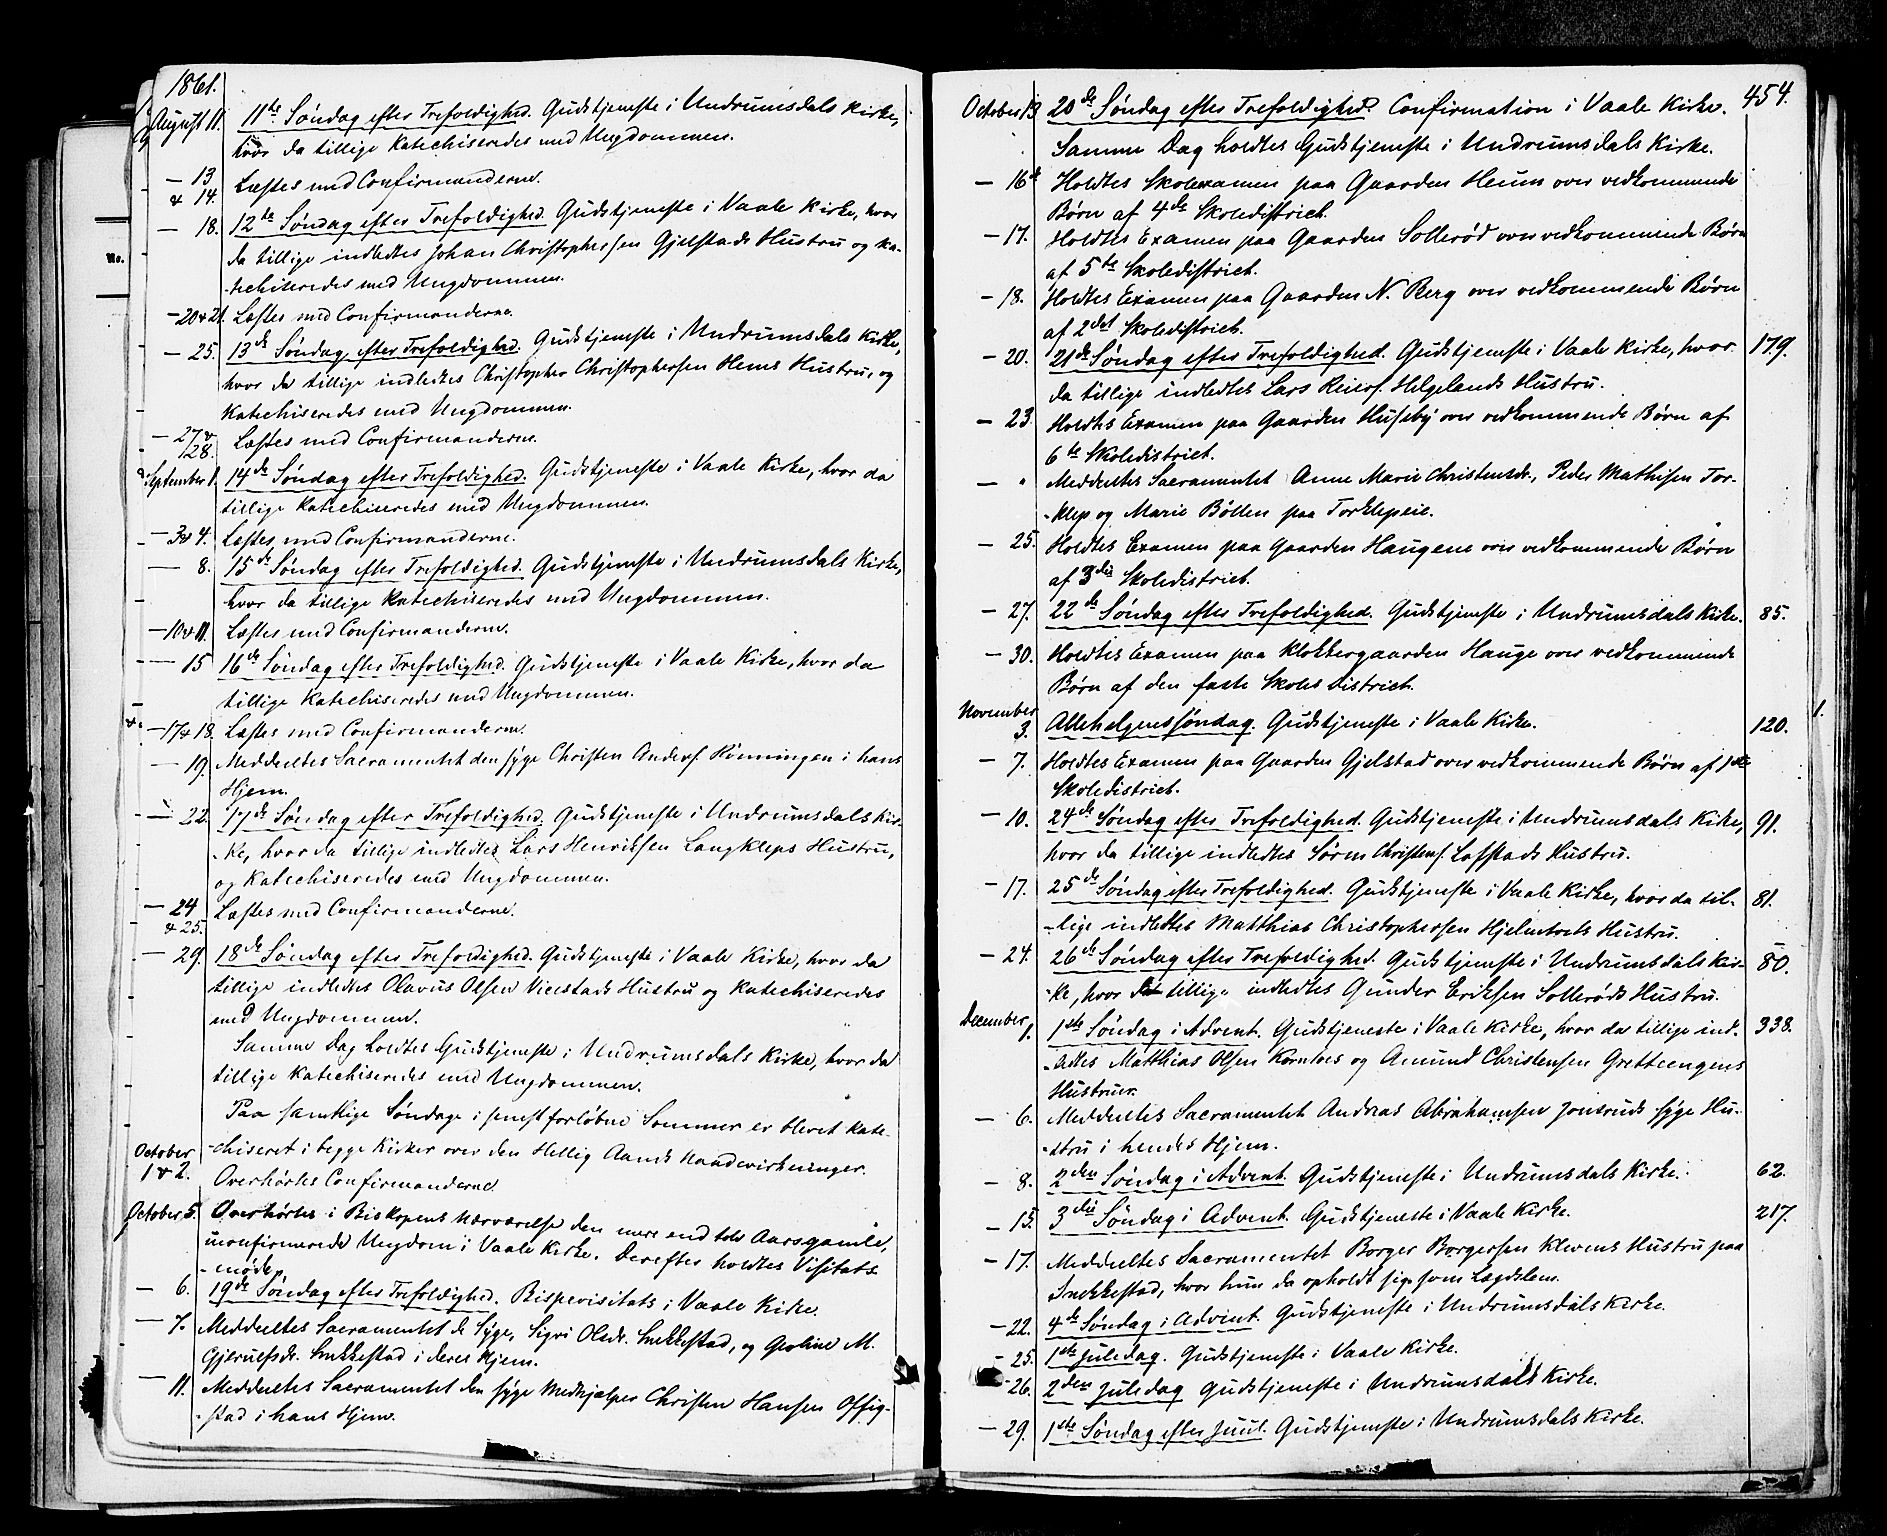 1861.
August 11. 11te Søndag efter Trefoldighed. Gudstjeneste i Undrumsdals Kirke,
hvor da tillige Katechiseredes med Ungdommen.
— 13
& 14. Læstes med Confirmanderne.
— 18. 12te Søndag efter Trefoldighed. Gudstjeneste i Vaale Kirke, hvor
da tillige indledtes Johan Christophersen Gjelstads Hustru og ka-
-techiseredes med Ungdommen.
— 20 & 21. Læstes med Confirmanderne.
— 25. 13de Søndag efter Trefoldighed. Gudstjeneste i Undrumsdals Kirke,
hvor da tillige indledtes Christopher Christophersen Hems Hustru, og
Katechiseredes med Ungdommen.
— 27 &
28. Læstes med Confirmanderne.
September 1. 14de Søndag efter Trefoldighed. Gudstjeneste i Vaale Kirke, hvor da
tillige Katechiseredes med Ungdommen.
— 3 & 4. Læstes med Confirmanderne.
— 8. 15de Søndag efter Trefoldighed. Gudstjeneste i Undrumsdals Kirke,
hvor da tillige Katechiseredes med Ungdommen.
— 10 & 11. Læstes med Confirmanderne.
— 15 16de Søndag efter Trefoldighed. Gudstjeneste i Vaale Kirke, hvor da
tillige Katechiseredes med Ungdommen.
— 17 & 18. Læstes med Confirmanderne.
— 19. Meddeeltes Sacramentet den syge Christen Anders. Rønningen i hans
Hjem.
— 22. 17de Søndag efter Trefoldighed. Gudstjeneste i Undrumsdals Kir-
-ke, hvor da tillige indledtes Lars Henriksen Langkleps Hustru,
og Katechiseredes med Ungdommen.
— 24
& 25. Læstes med Confirmanderne.
— 29. 18de Søndag efter Trefoldighed. Gudstjeneste i Vaale Kirke, hvor da
tillige indledtes Olavus Olsen Viestads Hustru og Katechiseredes
med Ungdommen.
Samme Dag holdtes Gudstjeneste i Undrumsdals Kirke, hvor da
tillige Katechiseredes med Ungdommen.
Paa samtlige Søndage i senest forløbne Sommer er blevet kate-
-chiseret i begge Kirker over den Hellig Aands Naadevirkninger.
October
1 & 2. Overhørtes Confirmanderne.
October 5. Overhørtes i Biskopens Nærværelse den mere end tolv Aarsgamle,
uconfirmerede Ungdom i Vaale Kirke. Derefter holdtes Visitats-
-møde.
— 6. 19de Søndag efter Trefoldighed. Bispevisitats i Vaale Kirke.
— 7. Meddeeltes Sacramentet de Syge, Sigri Olsdr. Snekkestad, og Groline M.
Gjerulfsdr. Snekkestad i deres Hjem.
— 11. Meddeeltes Sacramentet den syge Medhjælper Christen Hansen Offig-
-stad i hans Hjem.
454.
October 13 20de Søndag efter Trefoldighed. Confirmation i Vaale Kirke.
Samme Dag holdtes Gudstjeneste i Undrumsdals Kirke.
— 16de Holdtes Skoleexamen paa Gaarden Heum over vedkommende
Børn af 4de Skoledistrict.
— 17. Holdtes Examen paa Gaarden Sollerød over vedkommende Børn
af 5te Skoledistrict.
— 18. Holdtes Examen paa Gaarden N. Berg over vedkommende Børn
af 2det Skoledistrict.
— 20. 21de Søndag efter Trefoldighed. Gudstjeneste i Vaale Kirke, hvor 179.
da tillige indledtes Lars Reiers. Helgelands Hustru.
— 23. Holdtes Examen paa Gaarden Huseby over vedkommende Børn af
6te Skoledistrict.
— " Meddeeltes Sacramentet Anne Marie Christensdr., Peder Mathisen Tor-
-klep og Marie Bøllen paa Torklepeie.
— 25. Holdtes Examen paa Gaarden Haugene over vedkommende Børn
af 3die Skoledistrict.
— 27. 22de Søndag efter Trefoldighed. Gudstjeneste i Undrumsdals Kirke. 85.
— 30. Holdtes Examen paa Klokkergaarden Hauge over vedkommende
Børn af den faste Skoles District.
November
3. Allehelgenssøndag. Gudstjeneste i Vaale Kirke. 120.
— 7. Holdtes Examen paa Gaarden Gjelstad over vedkommende Børn af 1ste
Skoledistrict.
— 10. 24de Søndag efter Trefoldighed. Gudstjeneste i Undrumsdals Kirke, 91.
hvor da tillige indledtes Søren Christens. Lofstads Hustru.
— 17. 25de Søndag efter Trefoldighed. Gudstjeneste i Vaale Kirke, hvor da til- 81.
-lige indledtes Matthias Christophersen Hjelmtvets Hustru.
— 24. 26de Søndag efter Trefoldighed. Gudstjeneste i Undrumsdals Kir- 80.
-ke, hvor da tillige indledtes Gunder Eriksen Sollerøds Hustru.
December
1. 1ste Søndag i Advent. Gudstjeneste i Vaale Kirke, hvor da tillige ind- 338.
-ledtes Matthias Olsen Korntvs og Amund Christensen Gretteengens
Hustruer.
— 6. Meddeeltes Sacramentet Andreas Abrahamsen Jonsruds syge Hu-
-stru i hendes Hjem.
— 8. 2den Søndag i Advent. Gudstjeneste i Undrumsdals Kirke. 62.
— 15. 3die Søndag i Advent. Gudstjeneste i Vaale Kirke. 217.
— 17. Meddeeltes Sacramentet Borger Borgersen Klevens Hustru paa
Snekkestad, hvor hun da opholdt sig som Lægdslem.
— 22. 4de Søndag i Advent. Gudstjeneste i Undrumsdals Kirke.
— 25. 1ste Juledag. Gudstjeneste i Vaale Kirke.
— 26. 2den Juledag Gudstjeneste i Undrumsdals Kirke.
— 29. 1ste Søndag efter Juul. Gudstjeneste i Undrumsdals Kirke.
No.
1.